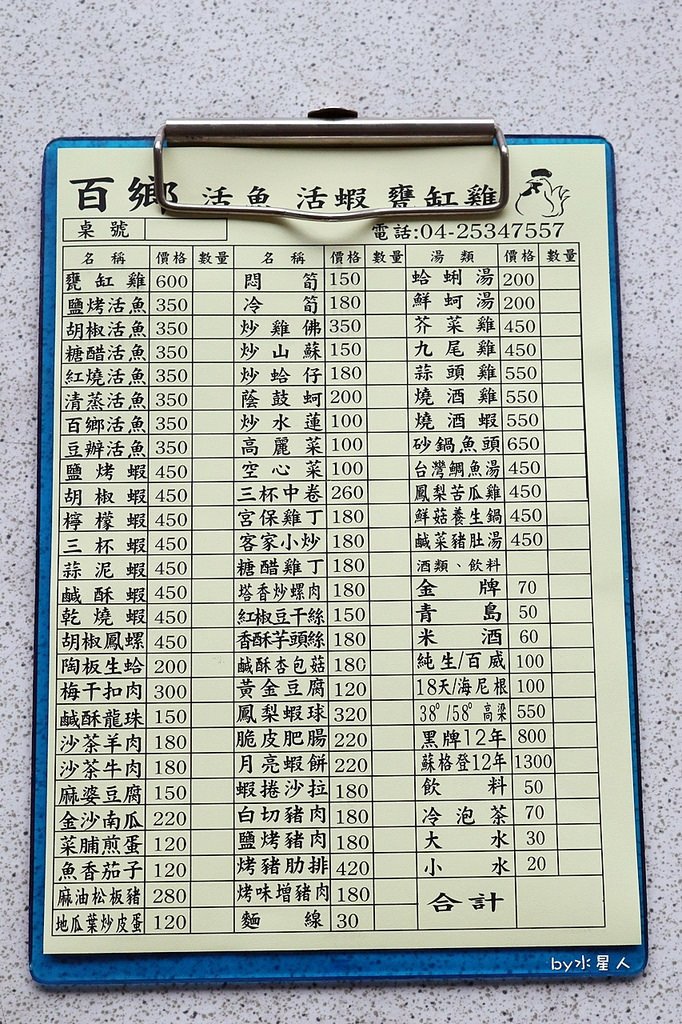 百鄉 活魚 活蝦 甕缸雞
桌號
電話:04-25347557
名稱 價格 數量 名稱 價格 數量 湯類 價格 數量
甕缸雞 600 悶筍 150 蛤蜊湯 200
鹽烤活魚 350 冷筍 180 鮮蚵湯 200
胡椒活魚 350 炒雞佛 350 芥菜雞 450
糖醋活魚 350 炒山蘇 150 九尾雞 450
紅燒活魚 350 炒蛤仔 180 蒜頭雞 550
清蒸活魚 350 蔭鼓蚵 200 燒酒雞 550
百鄉活魚 350 炒水蓮 100 燒酒蝦 550
豆瓣活魚 350 高麗菜 100 砂鍋魚頭 650
鹽烤蝦 450 空心菜 100 台灣鯛魚湯 450
胡椒蝦 450 三杯中卷 260 鳳梨苦瓜雞 450
檸檬蝦 450 宮保雞丁 180 鮮菇養生鍋 450
三杯蝦 450 客家小炒 180 鹹菜豬肚湯 450
蒜泥蝦 450 糖醋雞丁 180 酒類、飲料
鹹酥蝦 450 塔香炒螺肉 180 金牌 70
乾燒蝦 450 紅椒豆干絲 150 青島 50
胡椒鳳螺 450 香酥芋頭絲 180 米酒 60
陶板生蛤 200 鹹酥杏包菇 180 純生/百威 100
梅干扣肉 300 黃金豆腐 120 18天/海尼根 100
鹹酥龍珠 150 鳳梨蝦球 320 38°/58°高粱 550
沙茶羊肉 180 脆皮肥腸 220 黑牌12年 800
沙茶牛肉 180 月亮蝦餅 220 蘇格登12年 1300
麻婆豆腐 150 蝦捲沙拉 180 飲料 50
金沙南瓜 220 白切豬肉 180 冷泡茶 70
菜脯煎蛋 120 鹽烤豬肉 180 大水 30
魚香茄子 120 烤豬肋排 420 小水 20
麻油松板豬 280 烤味增豬肉 180 合計
地瓜葉炒皮蛋 120 麵線 30
by水星人